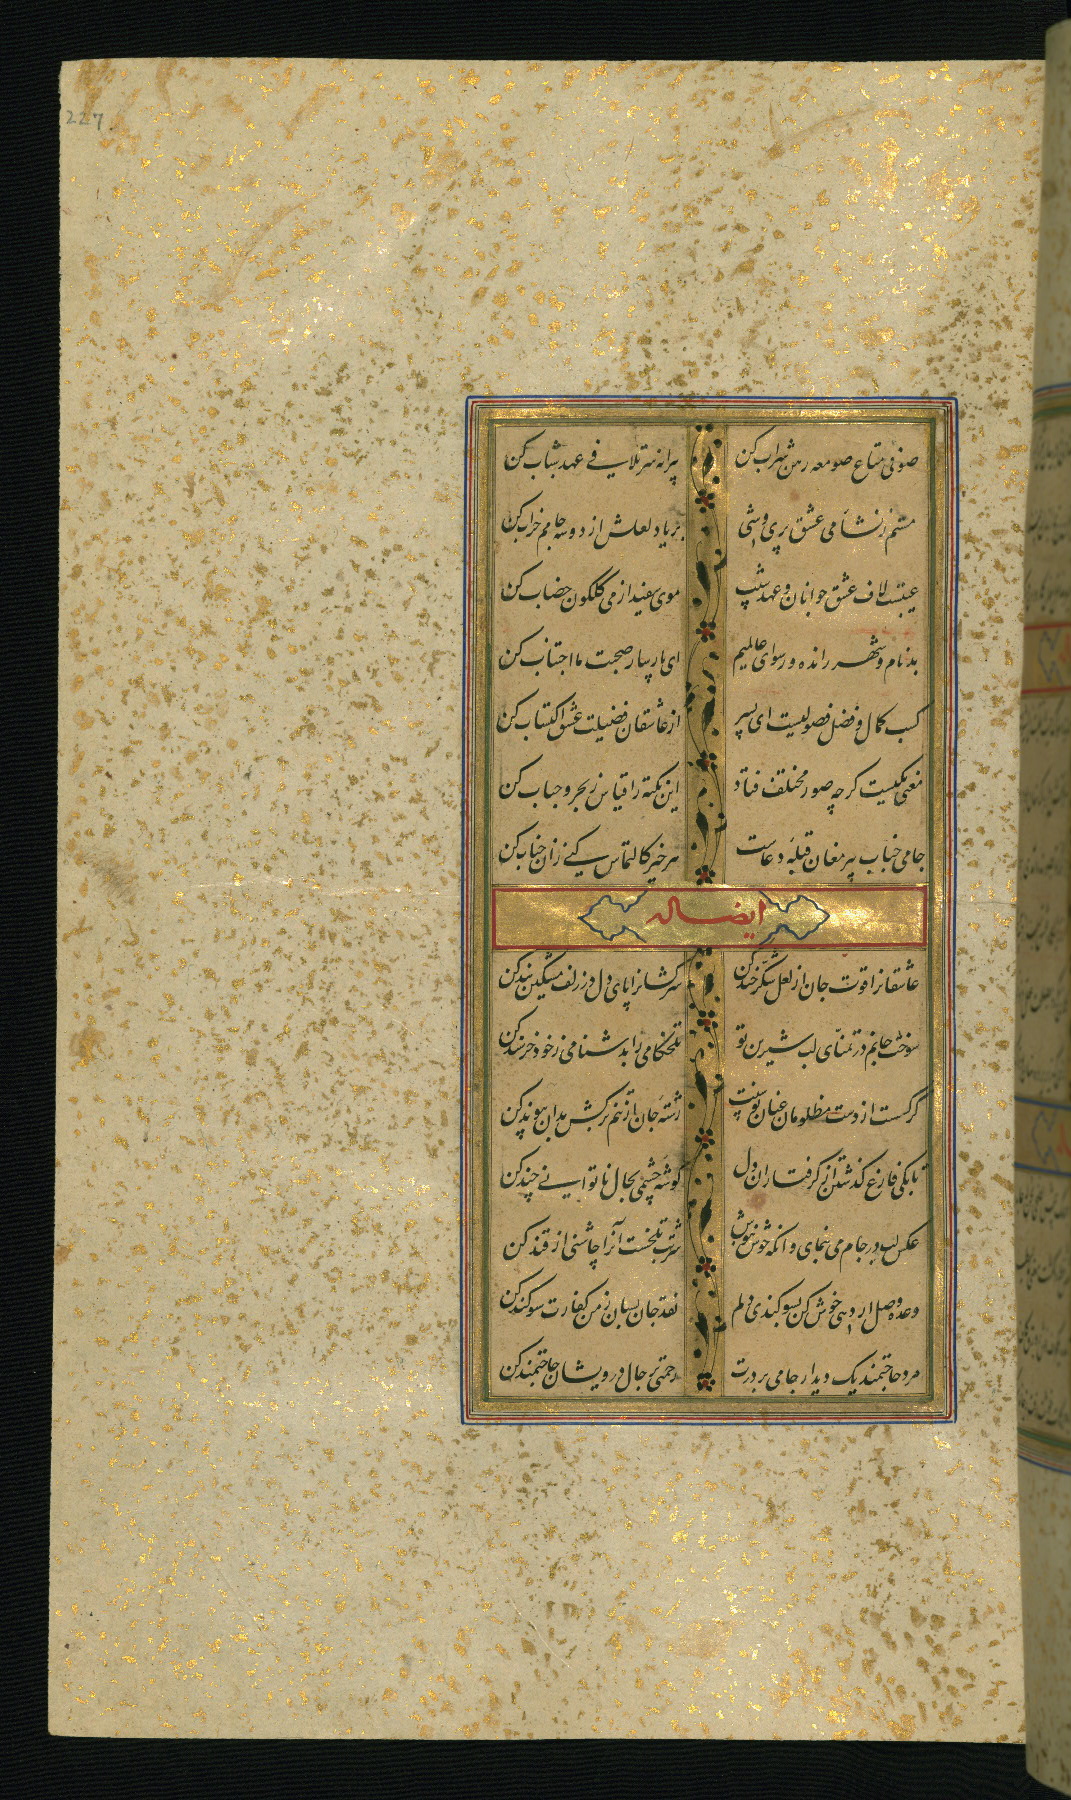 227
صوفی متاع صومعه رهن شراب کن	پیرانه سر تلافی عهد شباب کن
مستم ز نشأه می عشق پری وشی	بر یاد لعلش از دو سه جامم خراب کن
عیبست لاف عشق جوانان و عهد شیب	موی سفید از می گلگون خضاب کن
بدنام و شهر رانده و رسوای عالمیم	ای پارسا ز صحبت ما اجتناب کن
کسب کمال و فضل فضولیست ای پسر	از عاشقان فضیلت عشق اکتساب کن
معنی یکیست گرچه صور مختلف فتاد	این نکته را قیاس ز بحر و حباب کن
جامی جناب پیر مغان قبله دعاست	هر خیر کالتماس کنی زان جناب کن
ایضا له
عاشقانرا قوت جان از لعل شکرخند کن	سرکشانرا پای دل در زلف مشکین بند کن
سوخت جانم در تمنای لب شیرین تو	تلخکامی را بدشنامی ز خود خرسند کن
گر گسست از دست مظلومان عنان توسنت	رشته جان از تنم برکش بدان پیوند کن
تا بکی فارغ گذشتن از گرفتاران دل	گوشه چشمی بحال ناتوانی چند کن
عکس لب در جام می بنمای وانگه خوش بنوش	شربت تلخست آنرا چاشنی از قند کن
وعده وصل ار دهی خوش کن بسوگندی دلم	نقد جان بستان ز من کفارت سوگند کن
مرد حاجتمند یک دیدار جامی بر درت	رحمتی بر حال درویشان حاجتمند کن